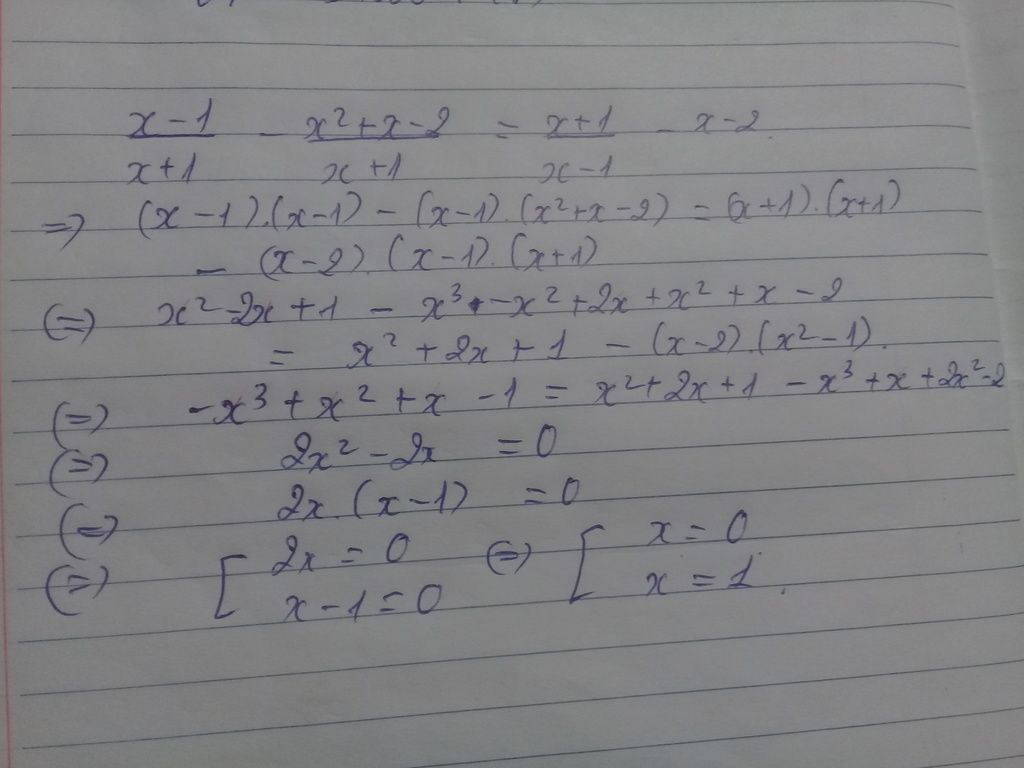 x-1/x+1 - x²+x-2/x+1 = x+1/x-1 - x-2
=> (x-1).(x-1) - (x-1).(x²+x-2) = (x+1).(x+1)
- (x-2).(x-1).(x+1)
(=) x²-2x+1 - x³ - x²+2x+x²+x-2
= x²+2x+1 - (x-2).(x²-1).
(=) -x³+x²+x-1 = x²+2x+1-x³+x+2x²-2
(=) 2x²-2x = 0
(=) 2x.(x-1) = 0
(=) [ 2x=0 (=) [ x=0
x-1=0 x=1.